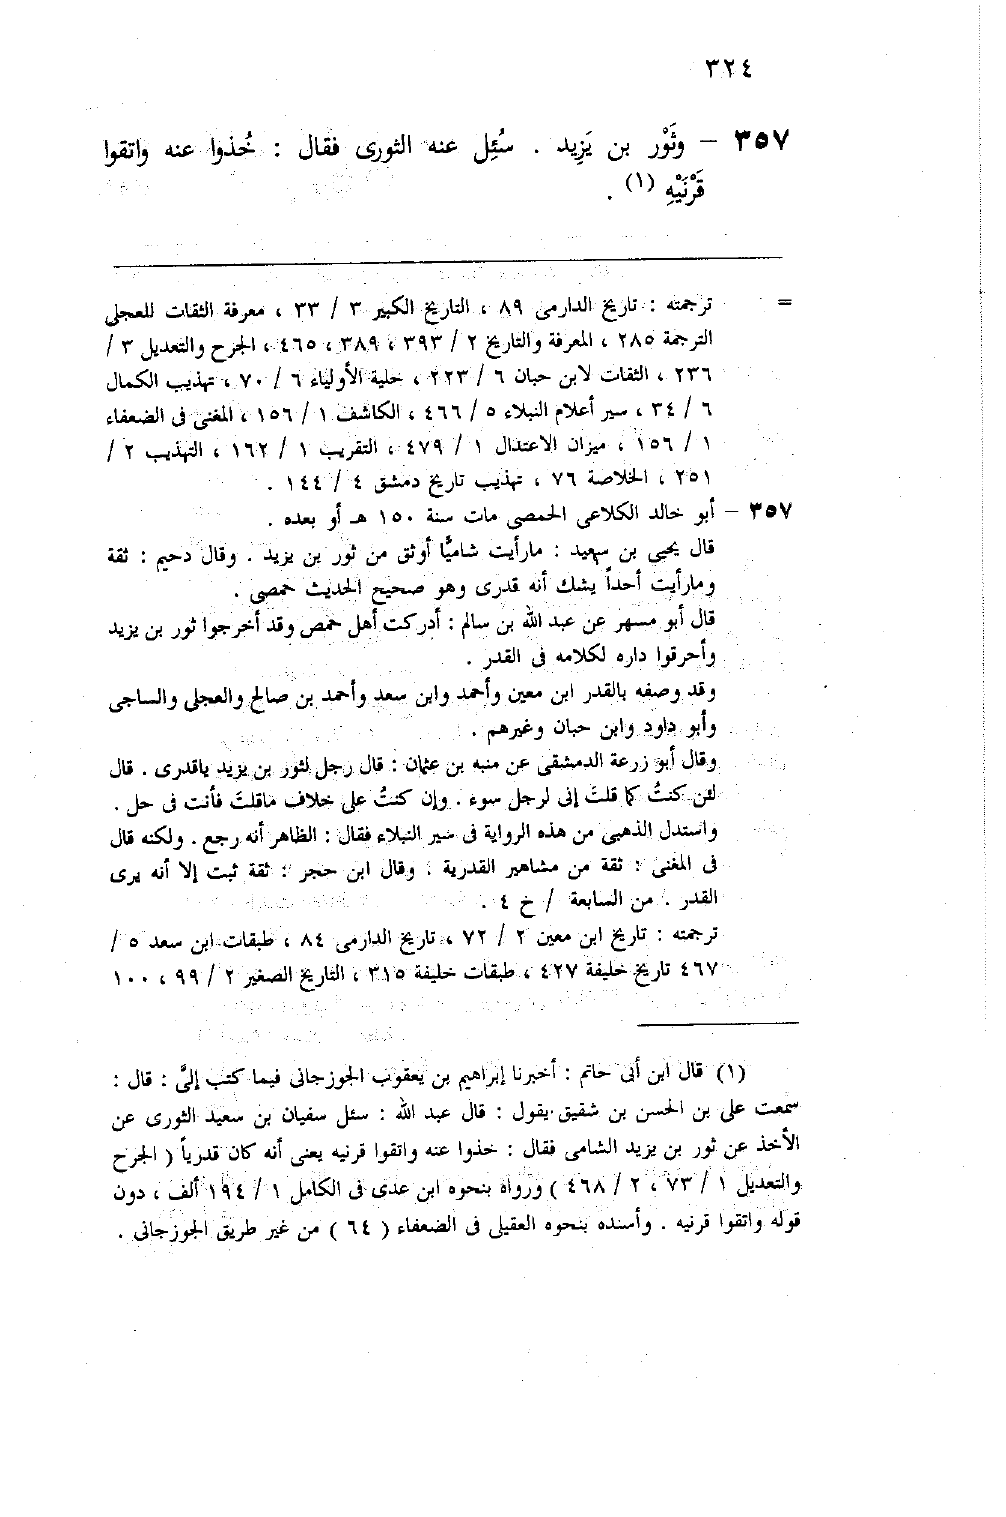 ٣٢٤
٣٥٧ – وثَوْر بن يَزِيد . سُئِل عنه الثورى فقال : خُذوا عنه واتقوا
قَرْنَيْهِ (١) .
= ترجمته : تاريخ الدارمى ٨٩ ، التاريخ الكبير ٣ / ٣٣ ، معرفة الثقات للعجلى
الترجمة ٢٨٥ ، المعرفة والتاريخ ٢ / ٣٩٣ ، ٣٨٩ ، ٤٦٥ ، الجرح والتعديل ٣ /
٢٣٦ ، الثقات لابن حبان ٦ / ٢٢٣ ، حلية الأولياء ٦ / ٧٠ ، تهذيب الكمال
٦ / ٣٤ ، سير أعلام النبلاء ٥ / ٤٦٦ ، الكاشف ١ / ١٥٦ ، المغنى فى الضعفاء
١ / ١٥٦ ، ميزان الاعتدال ١ / ٤٧٩ ، التقريب ١ / ١٦٢ ، التهذيب ٢ /
٢٥١ ، الخلاصة ٧٦ ، تهذيب تاريخ دمشق ٤ / ١٤٤ .
٣٥٧ – أبو خالد الكلاعى الحمصى مات سنة ١٥٠ هـ أو بعده .
قال يحيى بن سعيد : مارأيت شاميًّا أوثق من ثور بن يزيد . وقال دحيم : ثقة
ومارأيت أحداً يشك أنه قدرى وهو صحيح الحديث حمصى .
قال أبو مسهر عن عبد الله بن سالم : أدركت أهل حمص وقد أخرجوا ثور بن يزيد
وأحرقوا داره لكلامه فى القدر .
وقد وصفه بالقدر ابن معين وأحمد وابن سعد وأحمد بن صالح والعجلى والساجى
وأبو داود وابن حبان وغيرهم .
وقال أبو زرعة الدمشقى عن منبه بن عثمان : قال رجل لثور بن يزيد ياقدرى . قال
لئن كنتُ كما قلتَ إنى لرجل سوء . وإن كنتُ على خلاف ماقلتَ فأنت فى حل .
واستدل الذهبى من هذه الرواية فى سير النبلاء فقال : الظاهر أنه رجع . ولكنه قال
فى المغنى : ثقة من مشاهير القدرية . وقال ابن حجر : ثقة ثبت إلا أنه يرى
القدر . من السابعة / خ ٤ .
ترجمته : تاريخ ابن معين ٢ / ٧٢ ، تاريخ الدارمى ٨٤ ، طبقات ابن سعد ٥ /
٤٦٧ تاريخ خليفة ٤٢٧ ، طبقات خليفة ٣١٥ ، التاريخ الصغير ٢ / ٩٩ ، ١٠٠
(١) قال ابن أبى حاتم : أخبرنا إبراهيم بن يعقوب الجوزجانى فيما كتب إلىَّ : قال :
سمعت على بن الحسن بن شقيق يقول : قال عبد الله : سئل سفيان بن سعيد الثورى عن
الأخذ عن ثور بن يزيد الشامى فقال : خذوا عنه واتقوا قرنيه يعنى أنه كان قدرياً ( الجرح
والتعديل ١ / ٧٣ ، ٢ / ٤٦٨ ) ورواه بنحوه ابن عدى فى الكامل ١ / ١٩٤ ألف ، دون
قوله واتقوا قرنيه . وأسنده بنحوه العقيلى فى الضعفاء ( ٦٤ ) من غير طريق الجوزجانى .